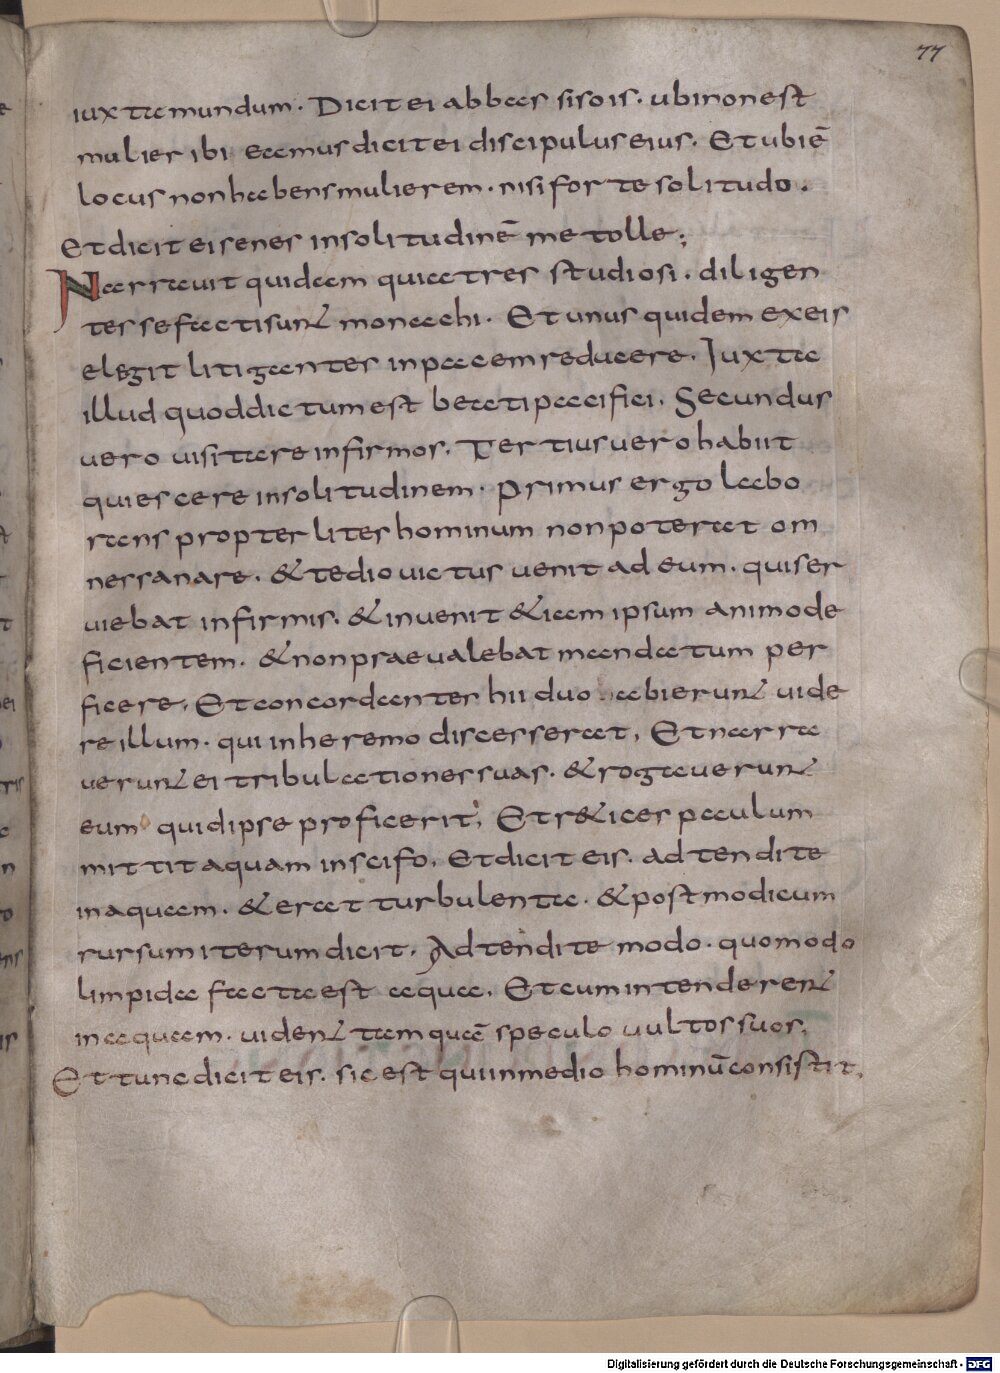 77
iuxta mundum. Dicit ei abbas sisois. ubi non est
mulier ibi eamus dicit ei discipulus eius. Et ubi ē
locus non habens mulierem. nisi forte solitudo.
Et dicit ei senes in solitudinē me tolle;
Narrauit quidam quia tres studiosi. diligen
tes se facti sunt monachi. Et unus quidem ex eis
elegit litigantes in pacem reducere. Iuxta
illud quod dictum est beati pacifici. Secundus
uero uisitare infirmos. Tertius uero habiit
quiescere in solitudinem. primus ergo labo
rans propter lites hominum non poterat om
nes sanare. & tedio uictus uenit ad eum. qui ser
uiebat infirmis. & inuenit &iam ipsum animo de
ficientem. & non praeualebat mandatum per
ficere. Et concordanter hii duo abierunt uide
re illum. qui in heremo discesserat. Et narra
uerunt ei tribulationes suas. & rogauerunt
eum quid ipse proficerit. Et r&ices paculum
mittit aquam in scifo. Et dicit eis. adtendite
in aquam. & erat turbulenta. & post modicum
rursum iterum dicit. Adtendite modo. quomodo
limpida facta est aqua. Et cum intenderent
in aquam. uident tamquā speculo uultos suos.
Et tunc dicit eis. sic est qui in medio hominū consistit.
Digitalisierung gefördert durch die Deutsche Forschungsgemeinschaft - DFG